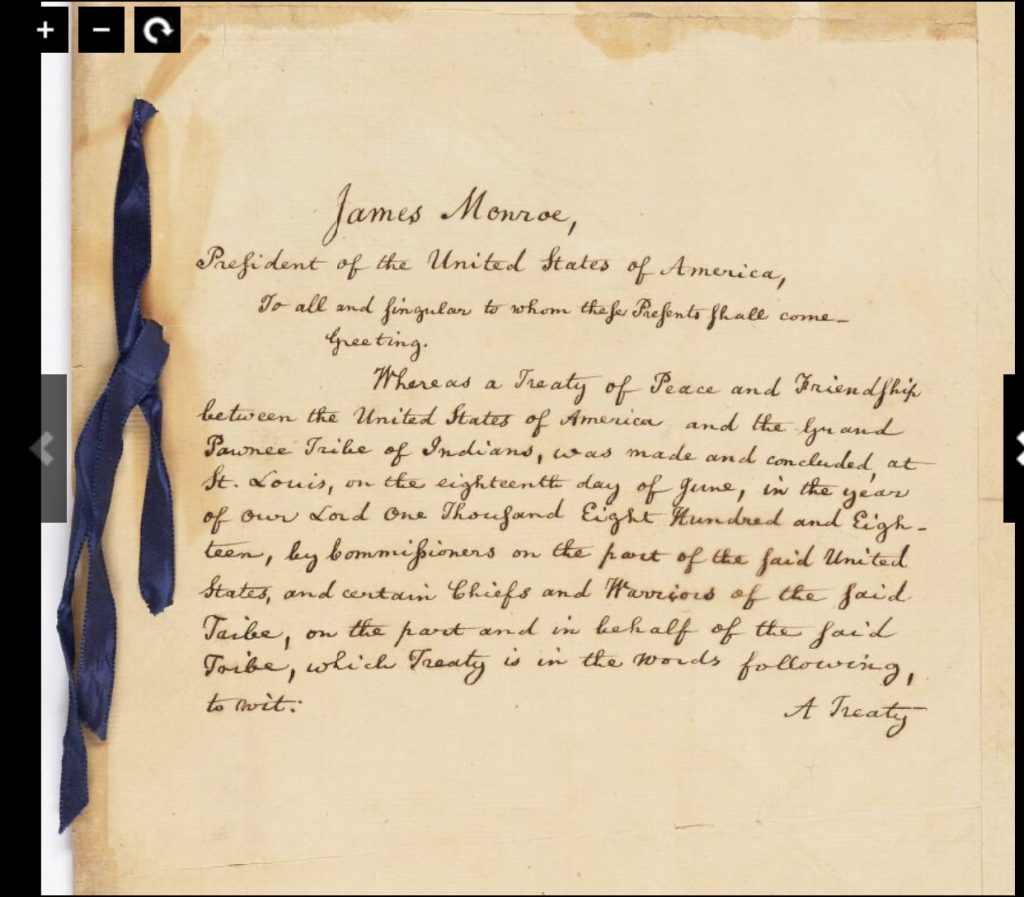 James Monroe,
President of the United States of America,
To all and singular to whom these Presents shall come_
Greeting.
Whereas a Treaty of Peace and Friendship
between the United States of America and the Grand
Pawnee Tribe of Indians, was made and concluded, at
St. Louis, on the eighteenth day of June, in the year
of our Lord One Thousand Eight Hundred and Eigh-
teen, by Commissioners on the part of the said United
States, and certain Chiefs and Warriors of the said
Tribe, on the part and in behalf of the said
Tribe, which Treaty is in the words following,
to wit:
A Treaty